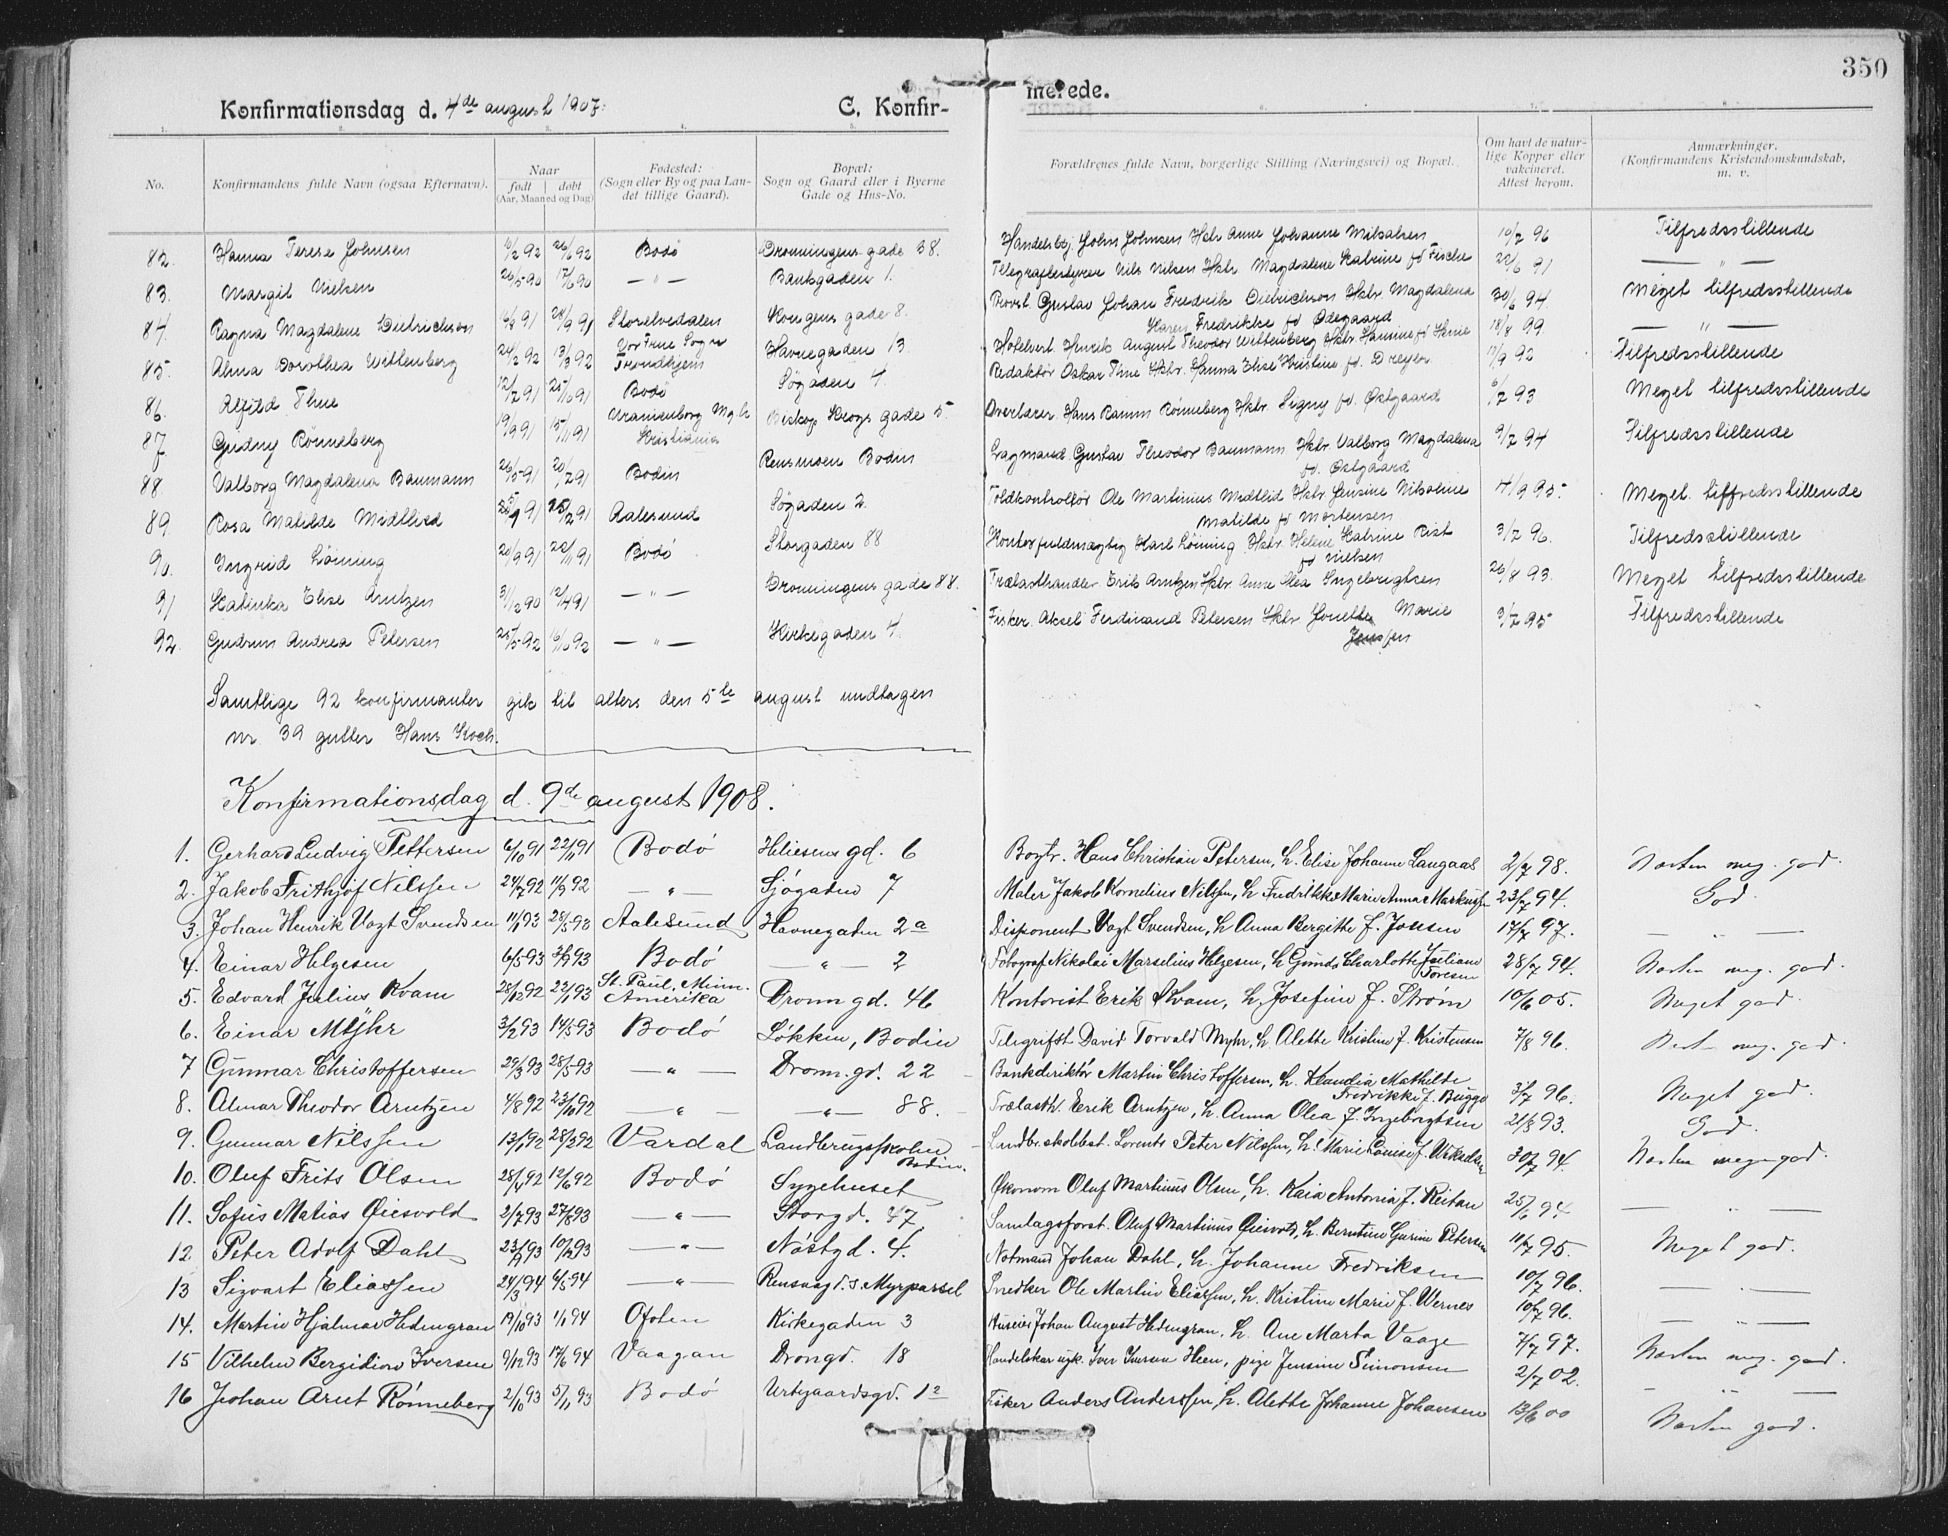 350
Konfirmationsdag d. 4de august 1907. C. Konfirmerede.
1. 2. 3. 4. 5. 6. 7. 8.
No. Konfirmandens fulde Navn (ogsaa Efternavn). Naar født døbt (Aar, Maaned og Dag) Fødested: (Sogn eller By og paa Landet tillige Gaard). Bopæl: Sogn og Gaard eller i Byerne Gade og Hus-No. Forældrenes fulde Navn, borgerlige Stilling (Næringsvei) og Bopæl. Om havt de naturlige Kopper eller vakcineret. Attest herom. Anmærkninger. (Konfirmandens Kristendomskundskab, m. v.
82. Hanna Terese Johnsen 92 26/6 92 Bodø Dronningens gade 38. Handelsbj. John Johnsen Hstr Anne Johanne Nilsdatter 10/7 96 Tilfredsstillende
83. Margit Nielsen 26/5 90 17/6 90 — " — Bankgaden 1. Telegrafbestyrer Nils Nilsen Hstr Magdalene Katrine fd Fischer 22/6 91 — " —
84. Ragna Magdalene Dietrichson 16/8 91 28/9 91 Storelvedalen Kongens gade 8. Provst Gustav Johan Fredrik Dietrichson Hstr Magdalena Karen Fredrikke fd Ødegaard 30/6 94 Meget tilfredsstillende
85. Alma Dorothea Wittenberg 24/2 92 13/3 92 Vor Frue Sogn Trondhjem Havnegaden 13. Hotelvert Henrik August Theodor Wittenberg Hstr Hannine fd Henie 18/8 99 — " —
86. Alfild Thue 12/7 91 25/10 91 Bodø Søgaden 4. Redaktør Oskar Thue Hstr. Hanna Elise Kristine fd. Dreyer 11/9 92 Tilfredsstillende
87. Gudny Rönneberg 19/9 91 15/11 91 Uranienborg Mgh Kristiania Biskop Krogs gade 5 Overlærer Hans Ramm Rönneberg Hstr Signy fd. Østgaard 6/7 93 Meget tilfredsstillende
88. Valborg Magdalena Baumann 26/5 91 20/7 91 Bodin Rensaasen Bodin Lagmand Gustav Theodor Baumann Hstr Valborg Magdalena fd. Østgaard 9/7 94 Tilfredsstillende
89. Rosa Matilde Midtlied 91 91 Aalesund Søgaden 2 Toldkontrollør Ole Martinius Midtlid Hstr Jensine Nilsoline Matilde fd Mortensen 4/9 95 Meget tilffredsstillende
90. Ingrid Löining 20/9 91 22/11 91 Bodö Storgaden 88 Kontorfuldmægtig Karl Löining Hstr. Helene Katrine Rist fd Nielsen 3/7 96. Tilfredsstillende
91 Katinka Elise Arntzen 31/12 90 12/4 91 — " — Dronningens gade 88. Trælasthandler Erik Arntzen Hstr Anna Olea Ingebrigtsen 26/8 93. Meget tilfredsstillende
92. Gudrun Andrea Petersen 25/5 92 16/10 92 — " — Kirkegaden 4. Fisker Aksel Ferdinand Petersen Hstr Jonette Marie Jenssen 9/7 95 Tilfredsstillende
Samtlige 92 konfirmanter gik til alters den 5te august undtagen
nr. 39 gutter Hans Koch.
Konfirmationsdag d. 9de august 1908.
1. Gerhard Ludvig Pettersen 6/10 91 22/11 91 Bodó Heliesens gd. 6 Bogtr. Hans Christian Petersen, h. Elise Johanne Langaas 2/7 98. Næsten meg. god.
2. Jakob Frithjof Nilssen 24/7 92 11/9 92 — " — Sjógaden 7 Maler Jakob Kornelius Nilssen, h. Fredrikke Marie Anna Markussen 23/7 94. God.
3. Johan Henrik Vogt Svendsen 11/1 93 28/5 93 Aalesund Havnegaden 2a Disponent Vogt Svendsen, h. Anna Bergitte f. Jossen 17/7 97. — " —
4. Einar Helgesen 6/5 93 93 Bodó — " — 2 Fotograf Nikolai Marselius Helgesen, h. Gunda Charlotte Juliane Toresen 28/7 94. Næsten meg. god.
5. Edvard Julius Kvam 28/12 92 22/1 93 St. Paul, Minn. Amerika Dronn gd. 46 Kontorist Erik Kvam, h. Josefine f. Strøm 10/6 05. Meget god.
6. Einar Myhr 3/2 93 14/5 93 Bodó Løkken, Bodin Telegrifst. David Torvald Myhr, h. Alette Kristine f. Kristensen 7/8 96. Næst. meg. god.
7 Gunnar Christoffersen 29/3 93 28/5 93 — " — Dronn. gd. 22 Bankdirektör Martin Christoffersen, h. Klaudia Mathilde Fredrikke f. Bugge 3/7 96. Meget god.
8. Almar Theodor Arntzen 4/8 92 23/10 92 — " — — " — 88. Trælasth. Erik Arntzen, h. Anna Olea f. Ingebrigtsen 21/8 93. God.
9. Gunnar Nilssen 13/1 92 28/2 92 Vardal Landbrugsskolen Bodin. Landbr. skolebest. Lorents Peter Nilssen, h. Marie Louise f. 30/7 94. Næsten meget god.
10. Oluf Frits Olsen 28/4 92 12/6 92 Bodó Sygehuset Økonom Oluf Martinus Olsen, h. Kaia Antonia f. Reitan 25/6 94 — " —
11. Sofus Matias Qiesvold 2/7 93 27/8 93 — " — Storgd. 47. Samlagsforst. Oluf Martinus h. Berntine Gurine Petersen 11/7 95. Meget god.
12. Peter Adolf Dahl 23/9 93 10/12 93 — " — Nóstgd. 4. Notmand Johan Dahl, h. Johanne Fredriksen 10/7 96. — " —
13 Sigvart Eliassen 24/3 94 6/5 94 — " — Rensaag d. s. Myrparsel Snedker Ole Martin Eliassen, h. Kristine Marie f. Wernes 10/7 96. — " —
14. Martin Hjalmar Hedengran 19/10 93 1/1 94 Ofoten Kirkegaden 3 Huseier Johan August Hedengran, h. Ane Marta Vaage 7/7 97. Næsten meg. god.
15 Vilhelm Bergiton Iversen 9/12 93 17/6 94 Vaagan Drongd. 18 Handelskar Iver Iversen Heen, pige Jensine Simonsen 2/7 02. — " —
16 Johan Arnt Rónneberg 2/10 93 5/11 93 Bodó Urtegaardsgd. 12 Fisker Anders Anderssen, h. Alette Johanne Johansen 13/6 00 Næsten god.